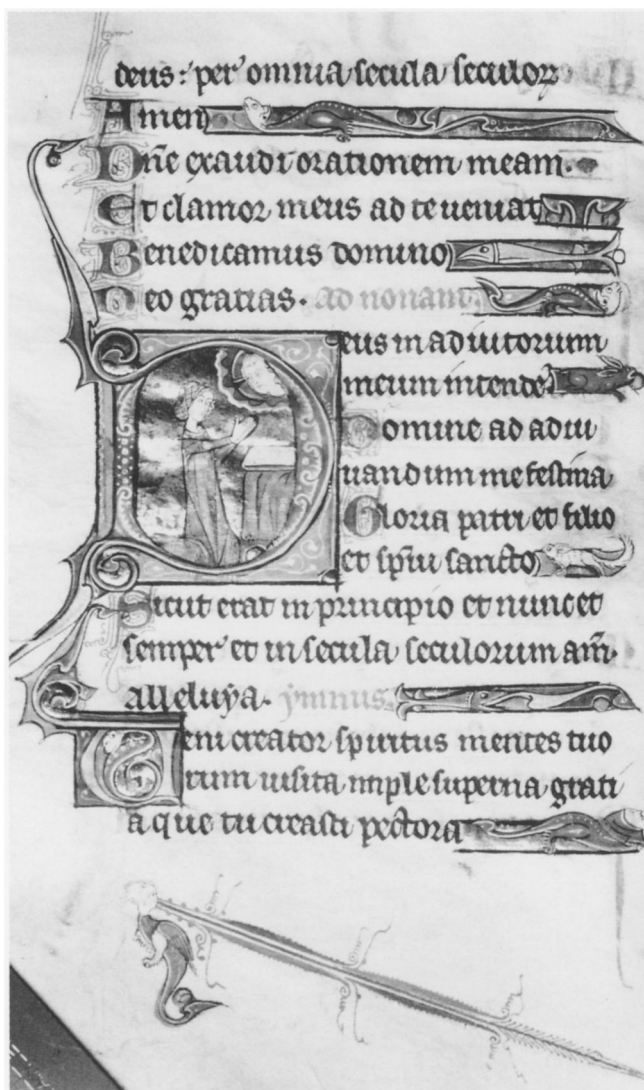 deus: per omnia secula seculoꝝ
Amen
Dn̄e exaudi orationem meam.
Et clamor meus ad te ueniat
Benedicamus domino
Deo gratias. ad nonam
Deus in adiutorium
meum intende
Domine ad adiu
uandum me festina
Gloria patri et filio
et sp̄iu sancto
Sicut erat in principio et nunc et
semper et in secula seculorum am̄.
alleluya. ymnus
Ueni creator spiritus mentes tuo
rum uisita imple superna grati
a que tu creasti pectora